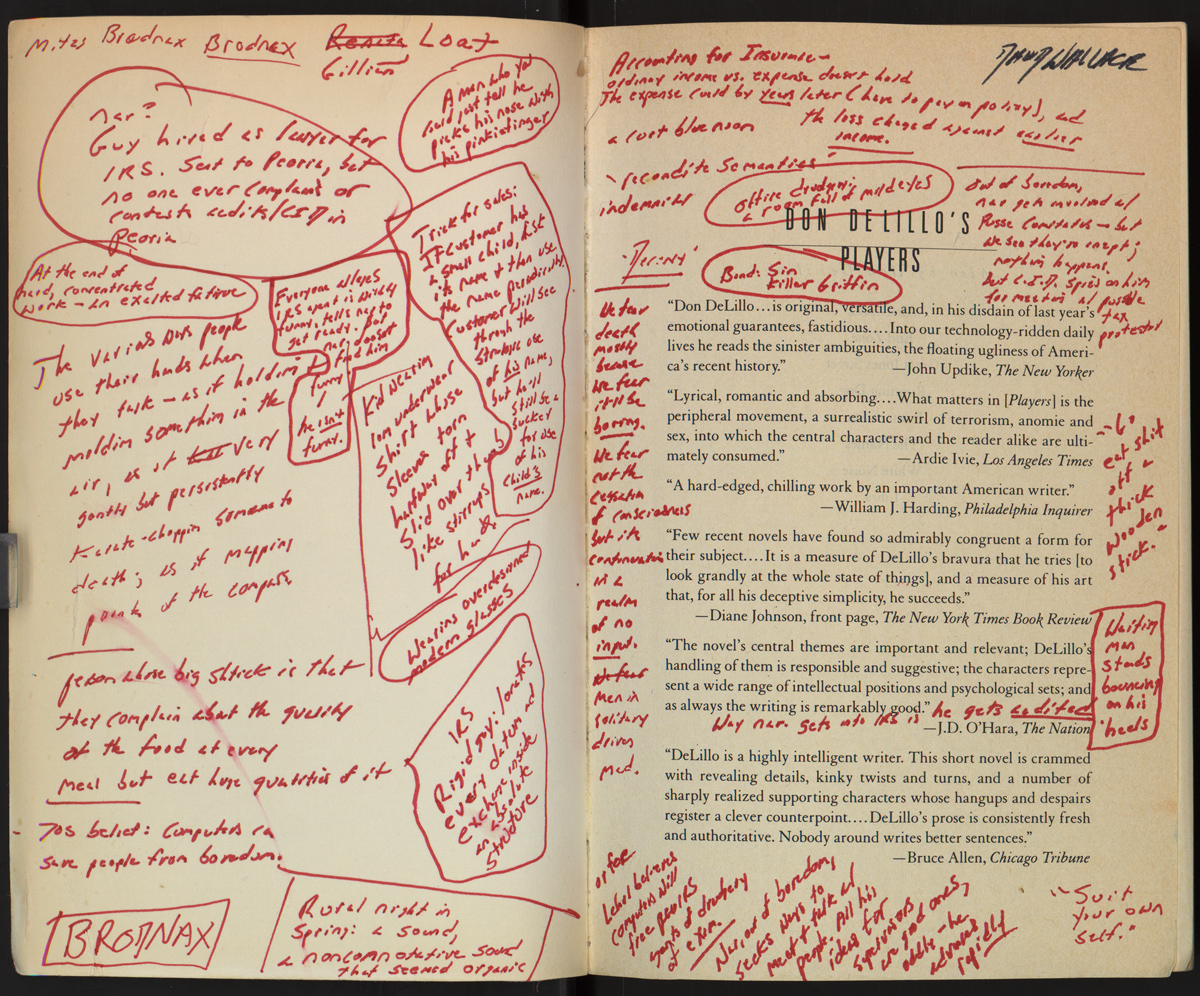 Mites Brodnax Brodnax Loaf
Gillian
nar?
Guy hired as lawyer for
IRS. Sent to Peoria, but
no one ever complains or
contests audits/CID in
Peoria
A man who you
could just tell he
picks his nose with
his pinkiefinger
At the end of
hard, concentrated
work – an exalted fatigue
Everyone alleges
IRS agent is wildly
funny, tells nar to
get ready. But
nar doesn't
find him
funny
he isn't
funny.
Trick for sales:
If customer has
a small child, ask
its name & then use
the name periodically.
Customer will see
through the
strategic use
of his name,
but he'll
still be a
sucker
for use
of his
child's
name.
The various ways people
use their hands when
they talk – as if holding
molding something in the
air, as if very
gently but persistently
karate-chopping someone to
death; as if mapping
points of the compass
Kid wearing
long underwear
shirt whose
sleeves torn
halfway off &
slid over thumbs
like stirrups
for hands
Wearing overdesigned
modern glasses
person whose big shtick is that
they complain about the quality
of the food at every
meal but eat huge quantities of it
IRS
Rigid guy: locates
every datum and
exchange inside
an absolute
structure
belief: Computers can
save people from boredom.
BRODNAX
Rural night in
Spring: a sound,
a nonconnotative sound
that seemed organic
Accounting for Insurance –
ordinary income vs. expense doesn't hold
The expense could be years later (have to pay on policy), and
the loss charged against earlier
income.
a curt blue noon
"recondite semantics"
indemnitor
office drudgery
a room full of mild eyes
DON DELILLO'S
PLAYERS
Bond: Sin
Killer Griffin
Out of boredom,
nar gets involved w/
Posse Comitatus – but
we see they're inept;
nothing happens.
But C.I.D. spies on him
for meeting w/ possible
tax
protestor
We fear
death
mostly
because
we fear
it'll be
boring.
We fear
not the
cessation
of consciousness
but its
continuation
in a
realm
of no
input.
men in
solitary
driven
mad.
"Don DeLillo...is original, versatile, and, in his disdain of last year's
emotional guarantees, fastidious....Into our technology-ridden daily
lives he reads the sinister ambiguities, the floating ugliness of Ameri-
ca's recent history."
—John Updike, The New Yorker
"Lyrical, romantic and absorbing....What matters in [Players] is the
peripheral movement, a surrealistic swirl of terrorism, anomie and
sex, into which the central characters and the reader alike are ulti-
mately consumed."
—Ardie Ivie, Los Angeles Times
"A hard-edged, chilling work by an important American writer."
—William J. Harding, Philadelphia Inquirer
"Few recent novels have found so admirably congruent a form for
their subject....It is a measure of DeLillo's bravura that he tries [to
look grandly at the whole state of things], and a measure of his art
that, for all his deceptive simplicity, he succeeds."
—Diane Johnson, front page, The New York Times Book Review
"The novel's central themes are important and relevant; DeLillo's
handling of them is responsible and suggestive; the characters repre-
sent a wide range of intellectual positions and psychological sets; and
as always the writing is remarkably good."
—J.D. O'Hara, The Nation
Way nar. gets into IRS is he gets audited
"DeLillo is a highly intelligent writer. This short novel is crammed
with revealing details, kinky twists and turns, and a number of
sharply realized supporting characters whose hangups and despairs
register a clever counterpoint....DeLillo's prose is consistently fresh
and authoritative. Nobody around writes better sentences."
—Bruce Allen, Chicago Tribune
"Go
eat shit
off a
thick
wooden
stick."
Waiting
man
stands
bouncing
on his
heels
believes
computers will
free
of drudgery
of exam.
Nar, out of boredom,
seeks ways to
meet & talk w/
people. All his
ideas for
supervisors
are good ones,
oddly – he
advances
rapidly
"Suit
your own
self."